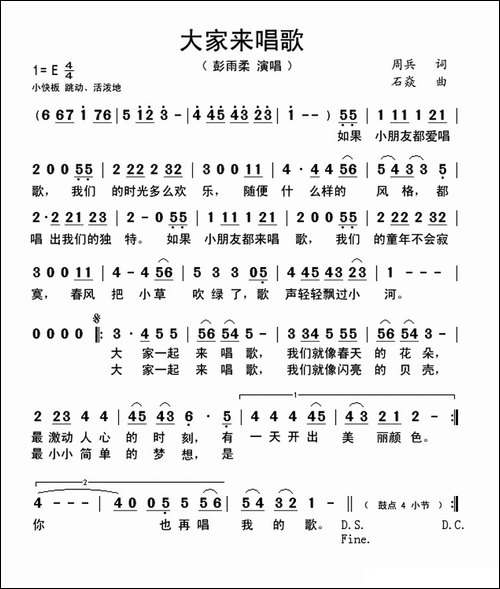 大家来唱歌
（ 彭雨柔 演唱 ）
周兵 词
1= E 4/4
小快板 跳动、活泼地
石焱 曲
( 6 67 1 76 | 5 12 3 - | 4 45 43 23 | 1 - - ) 55 | 11 11 1 21 |
如果 小朋友都爱唱
2 0 0 55 | 22 22 2 32 | 3 0 0 11 | 4 · 4 4 56 | 5 43 3 5 |
歌， 我们 的时光多么欢 乐， 随便 什 么样的 风 格， 都
2 · 2 21 23 | 2 - 0 55 | 11 11 1 21 | 2 0 0 55 | 22 22 2 32 |
唱 出我们的独 特。 如果 小朋友都来唱 歌， 我们 的童年不会寂
3 0 0 11 | 4 - 4 56 | 5 3 3 05 | 45 45 43 23 | 1 - - 0 |
寞， 春风 把 小草 吹 绿 了，歌 声轻轻飘过小 河。
0 0 0 0 ‖: 3 · 4 5 5 | 56 54 5 - | 33 33 3 23 | 4 3 4 - |
大 家一起 来 唱歌， 我们就像春天 的 花 朵，
大 家一起 来 唱歌， 我们就像闪亮 的 贝 壳，
1
2 23 4 4 | 45 43 6 · 5 | 4 44 4 45 | 43 21 2 - :‖
最 激动 人 心 的 时 刻， 有 一 天开 出 美 丽颜 色。
最 小小 简 单 的 梦 想， 是
2
4 - - - | 40 05 5 56 | 54 32 1 - ‖ ( 鼓点 4 小节 ) :‖
你 也再 唱 我 的 歌。 D.S. D.C.
Fine.